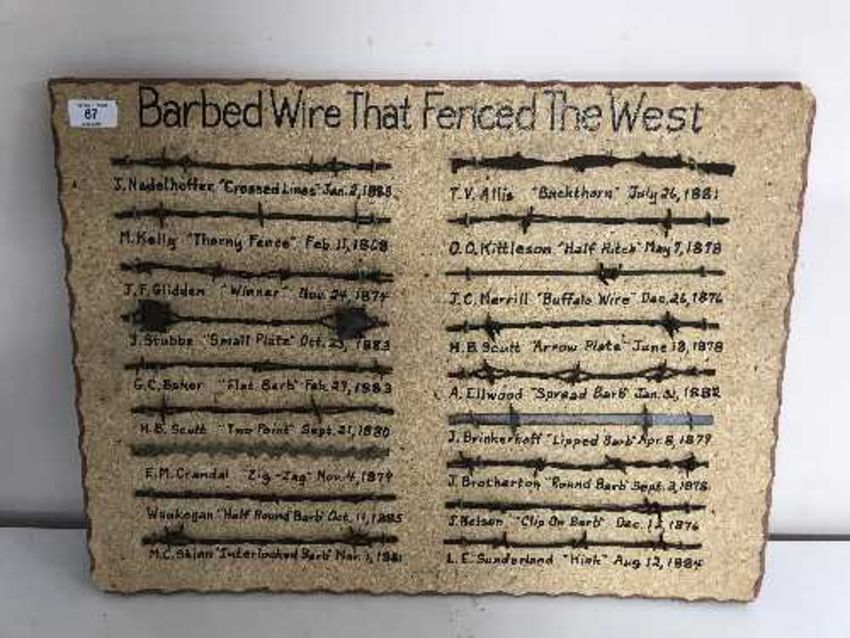 Barbed Wire That Fenced The West
67
J. Nadelhoffer "Crossed Lines" Jan. 2, 1883
M. Kelly "Thorny Fence" Feb. 11, 1868
J.F. Glidden "Winner" Nov. 24, 1874
J. Stubbe "Small Plate" Oct. 23, 1883
G.C. Baker "Flat Barb" Feb. 27, 1883
H.B. Scutt "Two Point" Sept. 21, 1880
E.M. Crandal "Zig-Zag" Nov. 4, 1879
Waukegan "Half Round Barb" Oct. 11, 1885
M.C. "Interlocked Barb" Mar. 1, 1881
T.V. Allis "Buckthorn" July 26, 1881
O.O. Kittleson "Half Hitch" May 7, 1878
J.C. Merrill "Buffalo Wire" Dec. 26, 1876
H.B. Scutt "Arrow Plate" June 18, 1878
A. Ellwood "Spread Barb" Jan. 31, 1882
J. Brinkerhoff "Lipped Barb" Apr. 8, 1879
J. Brotherton "Round Barb" Sept. 3, 1878
J. Nelson "Clip On Barb" Dec. 12, 1876
L.E. Sunderland "Kink" Aug 12, 1884